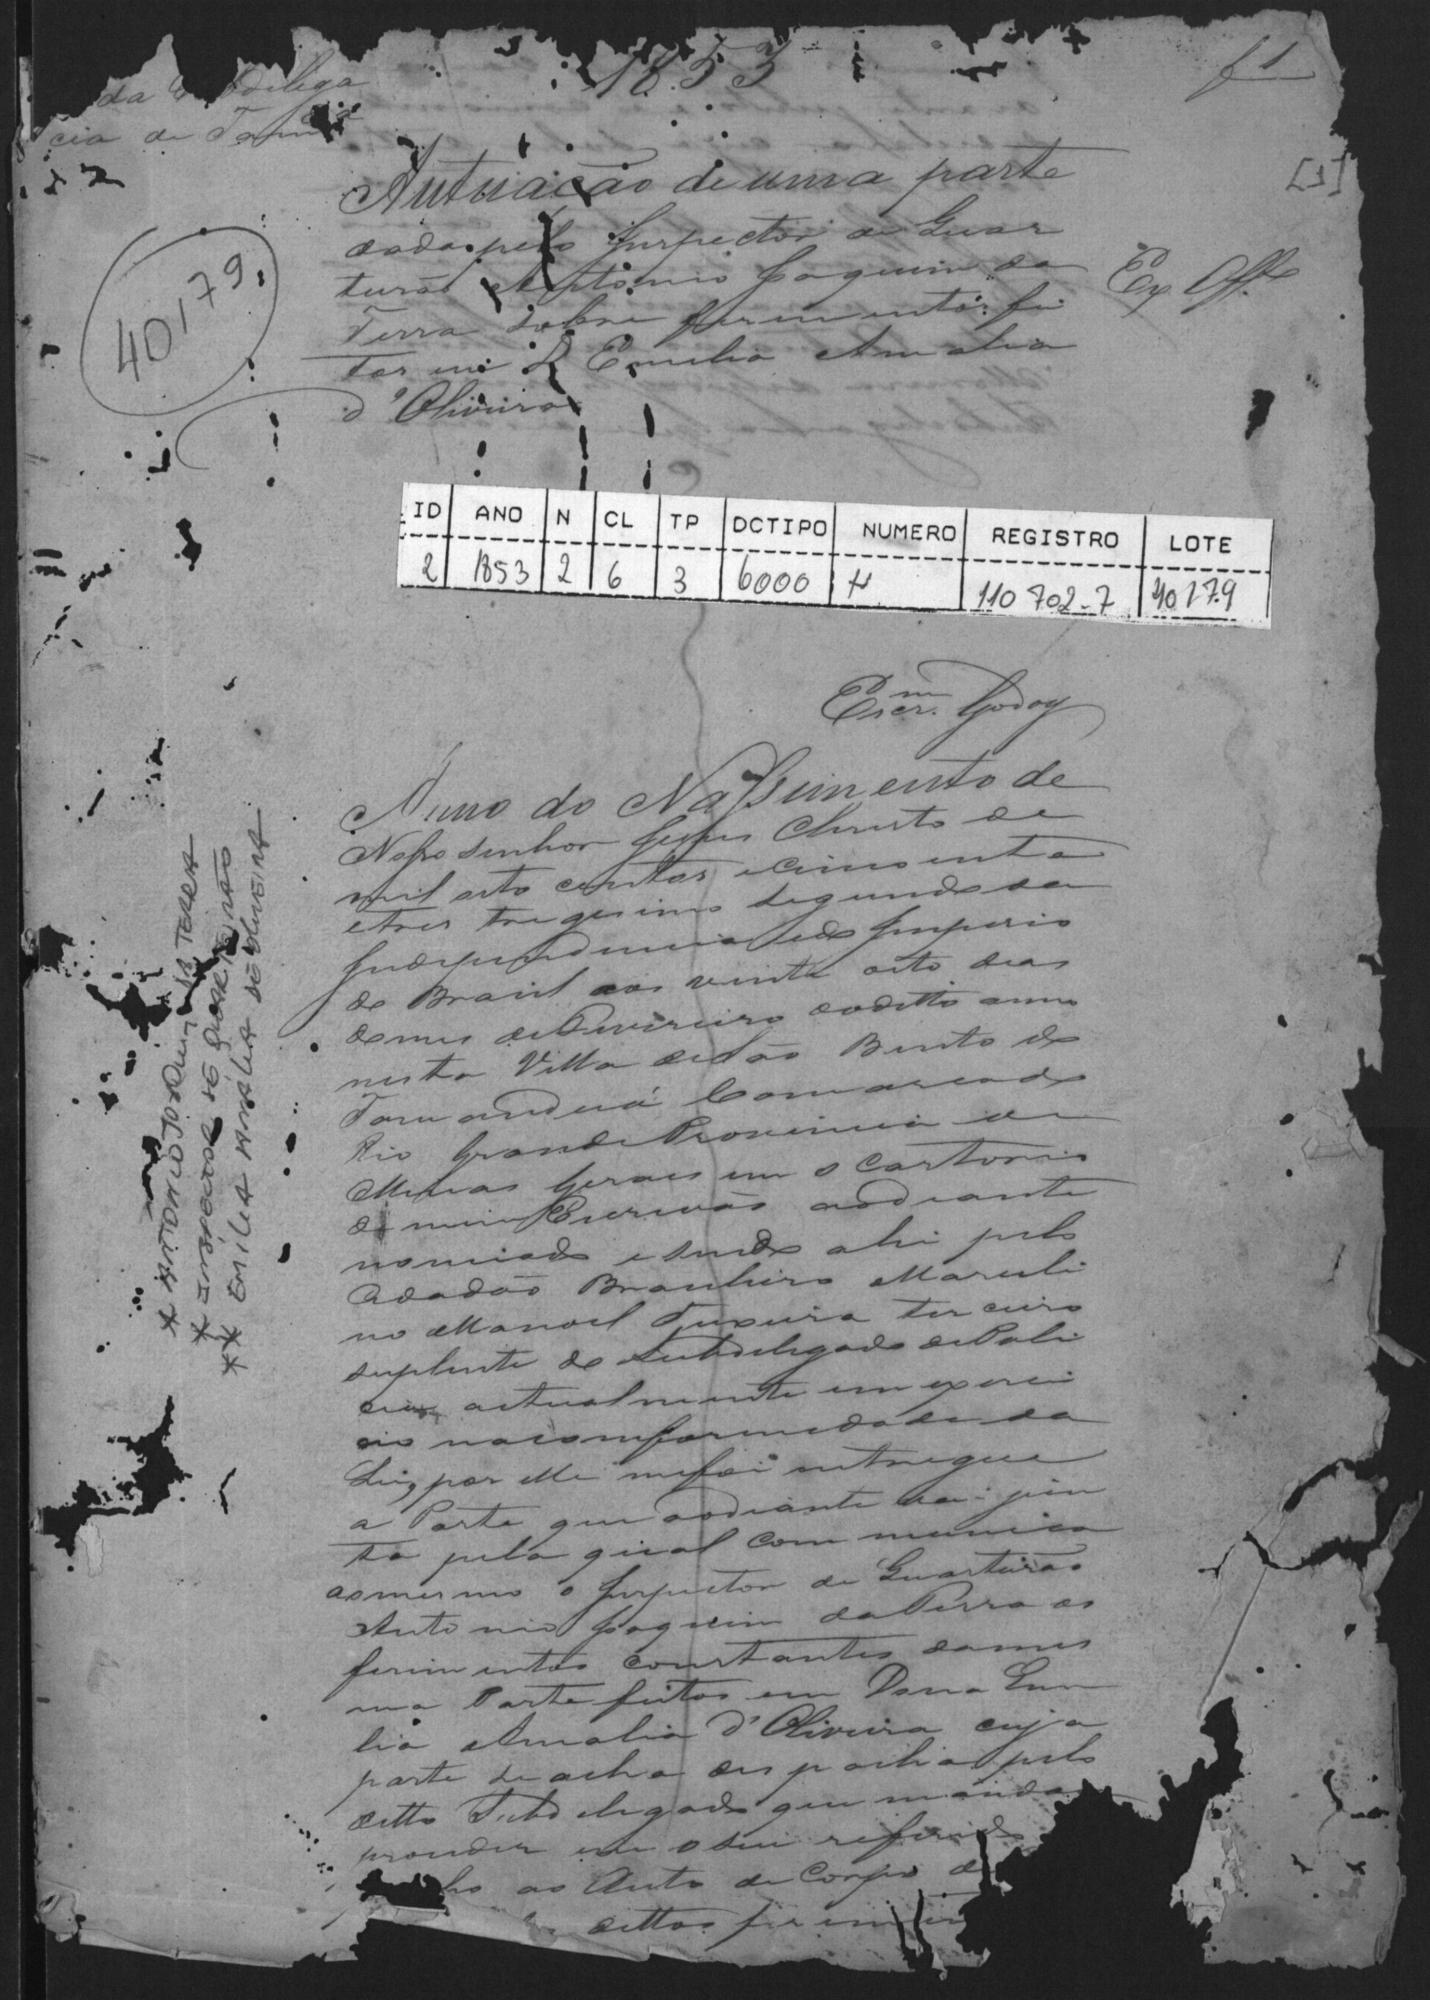 1853
f 1
da Subdelega
cia de Taman
[1]
Autuação de uma parte
dada pelo Inspector de Quar
turão Antonio Joaquim da
Terra sobre ferimentos fei
tos em D Emilia Amalia
d'Oliveira
Ex Offo
40179
ID ANO N CL TP DCTIPO NUMERO REGISTRO LOTE
2 1853 2 6 3 6000 110702-7 40179
Escr.m Godoy
Anno do Nassimento de
Nosso senhor Jesus Christo de
mil oito centos e cincoenta
e tres trigesimo segundo da
Independencia e do Imperio
do Brasil aos vinte oito dias
do mes de Fevereiro do ditto anno
nesta Villa de São Bento do
Tamanduá Comarca do
Rio Grande Provincia de
Minas Gerais em o Cartorio
de mim Escrivão aodiante
nomiado e sendo ahi pelo
Cidadão Brasileiro Marceli
no Manoel Teixeira terceiro
suplente do Subdelegado de Poli
cia actualmente em exerci
cio na comformidade da
Lei, por elle me foi entregue
a Parte que aodiante vai jun
ta pela qual communica
ao mesmo o Inspector de Quarturão
Antonio Joaquim da Terra os
ferimentos constantes da mes
ma Parte feitos em Dona Emi
lia Amalia d'Oliveira cuja
parte se acha despachada pelo
ditto Subdelegado que manda
proceder em o seu referido
ho ao Auto de Corpo de
dittos ferimentos
* ANTONIO JOAQUIM DA TERRA
* INSPECTOR DE QUARTEIRÃO
** EMÍLIA AMÁLIA DE OLIVEIRA